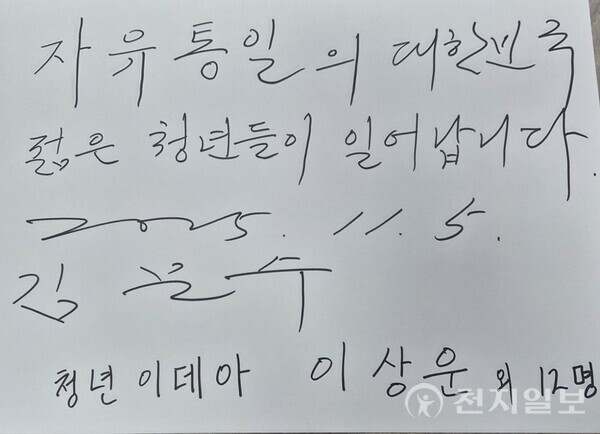 자유통일의 대한민국
젊은 청년들이 일어납니다.
2025. 11. 5.
김문수
청년이데아 이상운 외 12명
천지일보